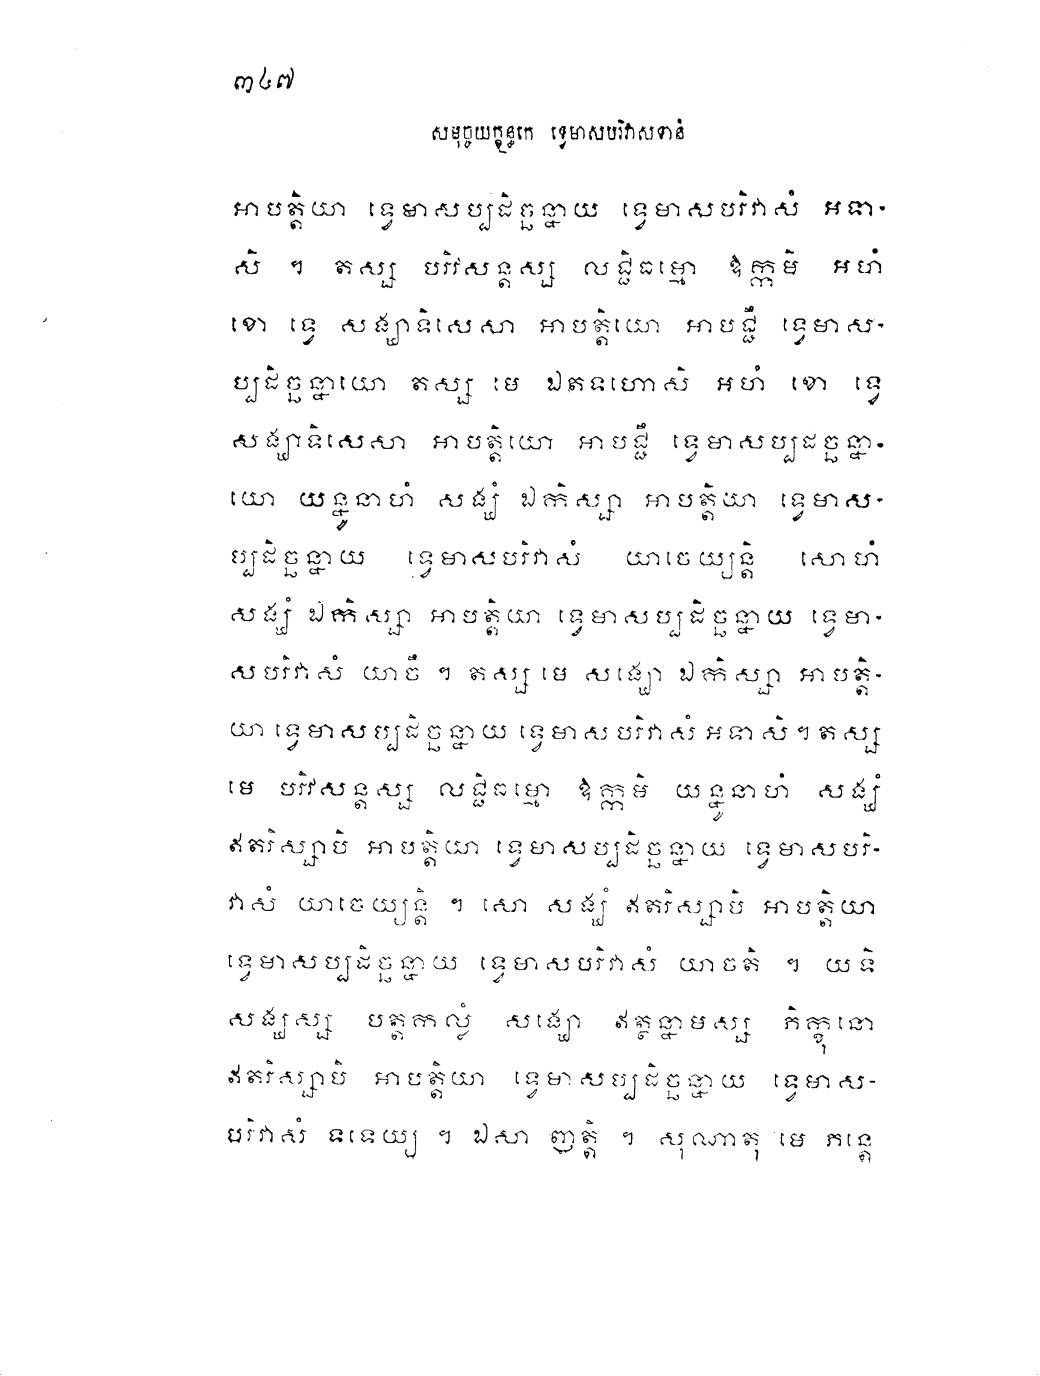 ៣៤៧
សមុច្ចយក្ខន្ធកេ ទ្វេមាសបរិវាសទានំ
អាបត្តិយា ទ្វេមាសប្បដិច្ឆន្នាយ ទ្វេមាសបរិវាសំ អទា-
សិ ។ តស្ស បរិវសន្តស្ស លជ្ជិធម្មោ ឱក្កមិ អហំ
ខោ ទ្វេ សង្ឃាទិសេសា អាបត្តិយោ អាបជ្ជឹ ទ្វេមាស-
ប្បដិច្ឆន្នាយោ តស្ស មេ ឯតទហោសិ អហំ ខោ ទ្វេ
សង្ឃាទិសេសា អាបត្តិយោ អាបជ្ជឹ ទ្វេមាសប្បដច្ឆន្នា-
យោ យន្នូនាហំ សង្ឃំ ឯកិស្សា អាបត្តិយា ទ្វេមាស-
ប្បដិច្ឆន្នាយ ទ្វេមាសបរិវាសំ យាចេយ្យន្តិ សោហំ
សង្ឃំ ឯកិស្សា អាបត្តិយា ទ្វេមាសប្បដិច្ឆន្នាយ ទ្វេមា-
សបរិវាសំ យាចឹ ។ តស្ស មេ សង្ឃោ ឯកិស្សា អាបត្តិ-
យា ទ្វេមាសប្បដិច្ឆន្នាយ ទ្វេមាសបរិវាសំ អទាសិ ។ តស្ស
មេ បរិវសន្តស្ស លជ្ជិធម្មោ ឱក្កមិ យន្នូនាហំ សង្ឃំ
ឥតរិស្សាបិ អាបត្តិយា ទ្វេមាសប្បដិច្ឆន្នាយ ទ្វេមាសបរិ-
វាសំ យាចេយ្យន្តិ ។ សោ សង្ឃំ ឥតរិស្សាបិ អាបត្តិយា
ទ្វេមាសប្បដិច្ឆន្នាយ ទ្វេមាសបរិវាសំ យាចតិ ។ យទិ
សង្ឃស្ស បត្តកាល្លំ សង្ឃោ ឥត្ថន្នាមស្ស ភិក្ខុនោ
ឥតរិស្សាបិ អាបត្តិយា ទ្វេមាសប្បដិច្ឆន្នាយ ទ្វេមាស-
បរិវាសំ ទទេយ្យ ។ ឯសា ញត្តិ ។ សុណាតុ មេ ភន្តេ